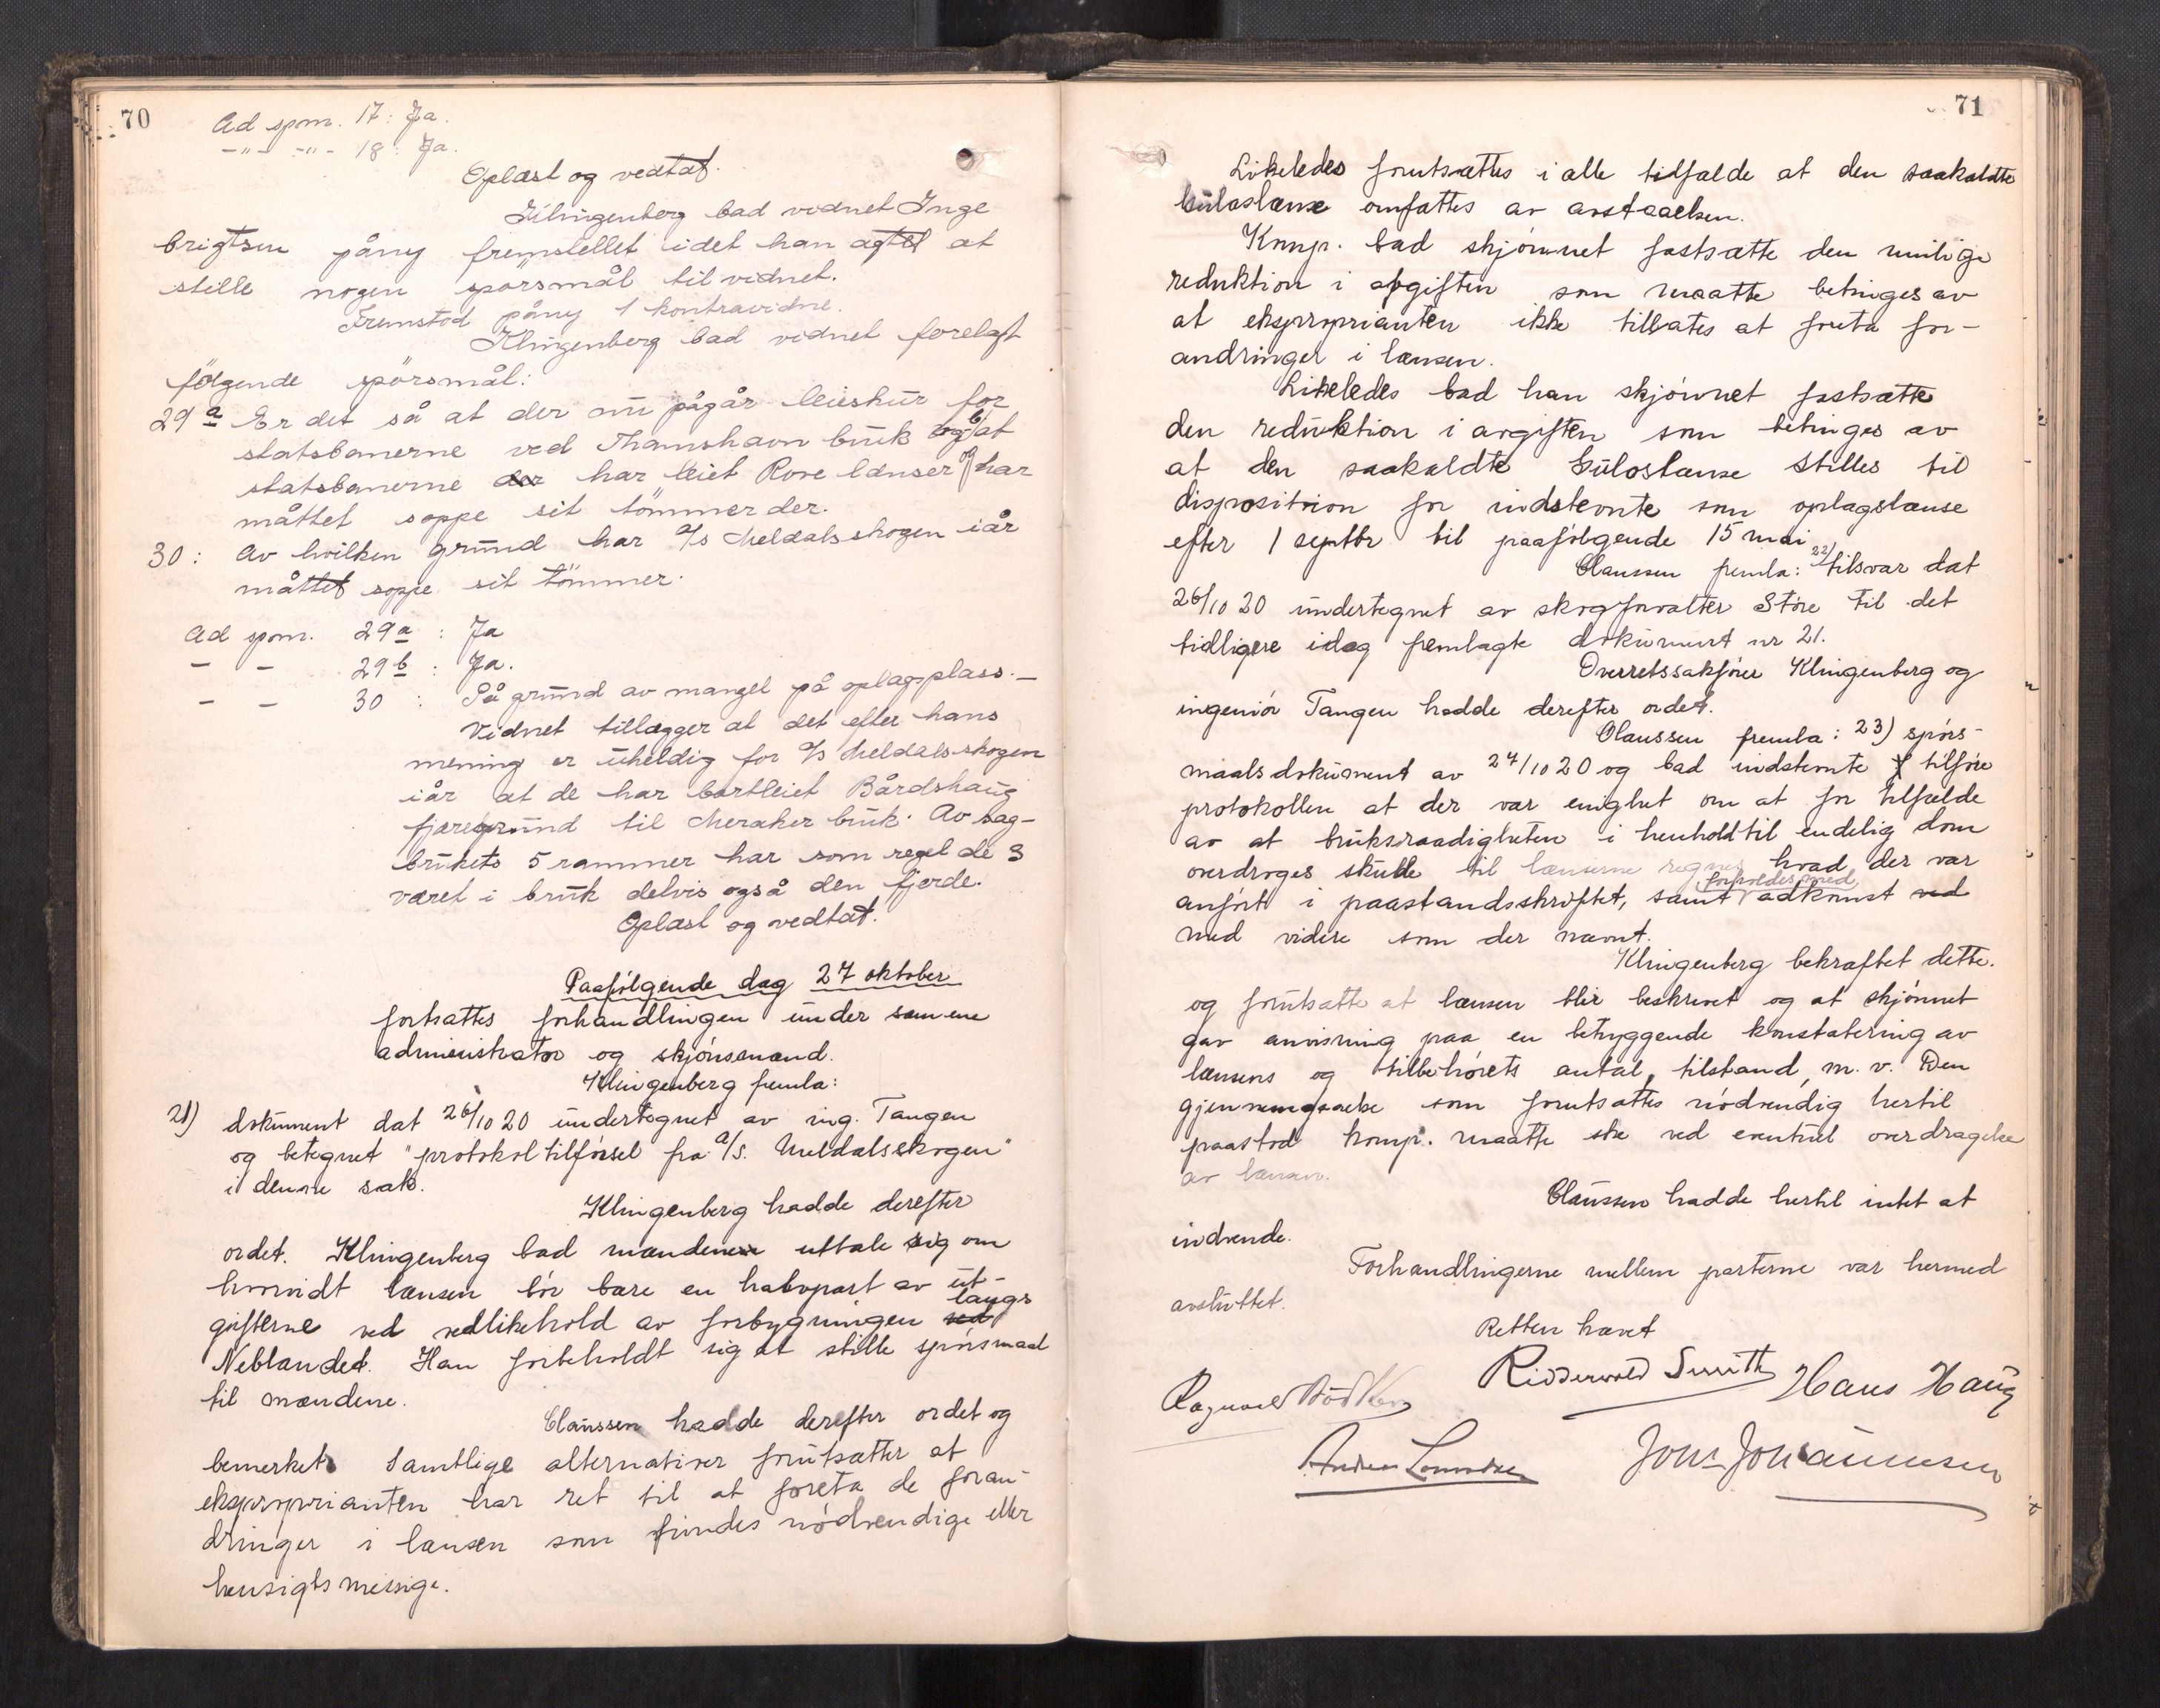 70
Ad spm. 17: Ja.
-"- -"- 18: Ja.
Oplæst og vedtat.
Klingenberg bad vidnet Inge
brigtsen påny fremstillet idet han agtet at
stille nogen spörsmål til vidnet.
Fremstod påny 1 kontravidne.
Klingenberg bad vidnet forelagt
fölgende spörsmål:
29a Er det så at der nu pågår leieskur for
statsbanerne ved Thamshavn bruk og b/ at
statsbanerne der har leiet Rove lænser og har
måttet soppe sit tömmer der.
30: Av hvilken grund har A/s Meldalsskogen iår
måttet soppe sit tömmer.
Ad spm. 29a : Ja
- - 29b : Ja.
- - 30 : På grund av mangel på oplagsplass.—
Vidnet tillægger at det efter hans
mening er uheldig for A/s Meldalsskogen
iår at de har bortleiet Bårdshaug
fjæregrund til Meraker bruk. Av sag-
brukets 5 rammer har som regel de 3
været i bruk delvis også den fjerde.
Oplæst og vedtat.
Paafölgende dag 27 oktober
fortsattes forhandlingen under samme
administrator og skjönsmænd.
Klingenberg femla:
21) dokument dat 26/10 20 undertegnet av ing. Tangen
og betegnet "protokoltilförsel fra A/S. Meldalsskogen"
i denne sak.
Klingenberg hadde derefter
ordet. Klingenberg bad mændene uttale sig om
hvorvidt lænsen bör bære en halvpart av ut-
gifterne ved vedlikehold av forbygningen ved langs
Neblandet. Han forbeholdt sig at stille spörsmaal
til mændene.
Claussen hadde derefter ordet og
bemerket samtlige alternativer forutsætter at
ekspropianten har ret til at foreta de foran-
dringer i lænsen som findes nödvendige eller
hensigtsmessige.
71
Likeledes forutsættes i alle tilfælde at den saakaldte
Guloslænse omfattes av avstaaelsen.
Komp. bad skjönnet fastsætte den mulige
reduktion i avgiften som maatte betinges av
at eksproprianten ikke tillates at foreta for-
andringer i lænsen.
Likeledes bad han skjönnet fastsætte
den reduktion i avgiften som betinges av
at den saakaldte Guloslænse stilles til
disposition for indstevnte som oplagslænse
efter 1 septbr til paafölgende 15 mai
Claussen femla: 22) tilsvar dat
26/10 20 undertegnet av skogforvalter Störe til det
tidligere idag femlagte dokument nr 21.
Overretssakförer Klingenberg og
ingeniör Tangen hadde derefter ordet.
Claussen femla: 23) spörs-
maalsdokument av 27/10 20 og bad indstevnte tilföre
protokollen at der var enighet om at for tilfælde
av at bruksraadigheten i henhold til endelig dom
overdroges skulde til lænserne regnes hvad der var
anfört i paastandsskriftet, samt forholdes med adkomst ved
med videre som der nævnt.
Klingenberg bekræftet dette.
og forutsatte at lænsen blir beskrevet og at skjönnet
gav anvisning paa en betryggende konstatering av
lænsens og tilbehörets antal, tilstand, m. v. Den
gjennemgaaelse som forutsattes nödvendig hertil
paastod komp. maatte ske ved eventuel overdragelse
av lænsen.
Claussen hadde hertil intet at
indvende.
Forhandlingerne mellem parterne var hermed
avsluttet.
Retten hævet
Ridderwold Smith Hans Haug
Ragnvald Bödtker
John Johannessen